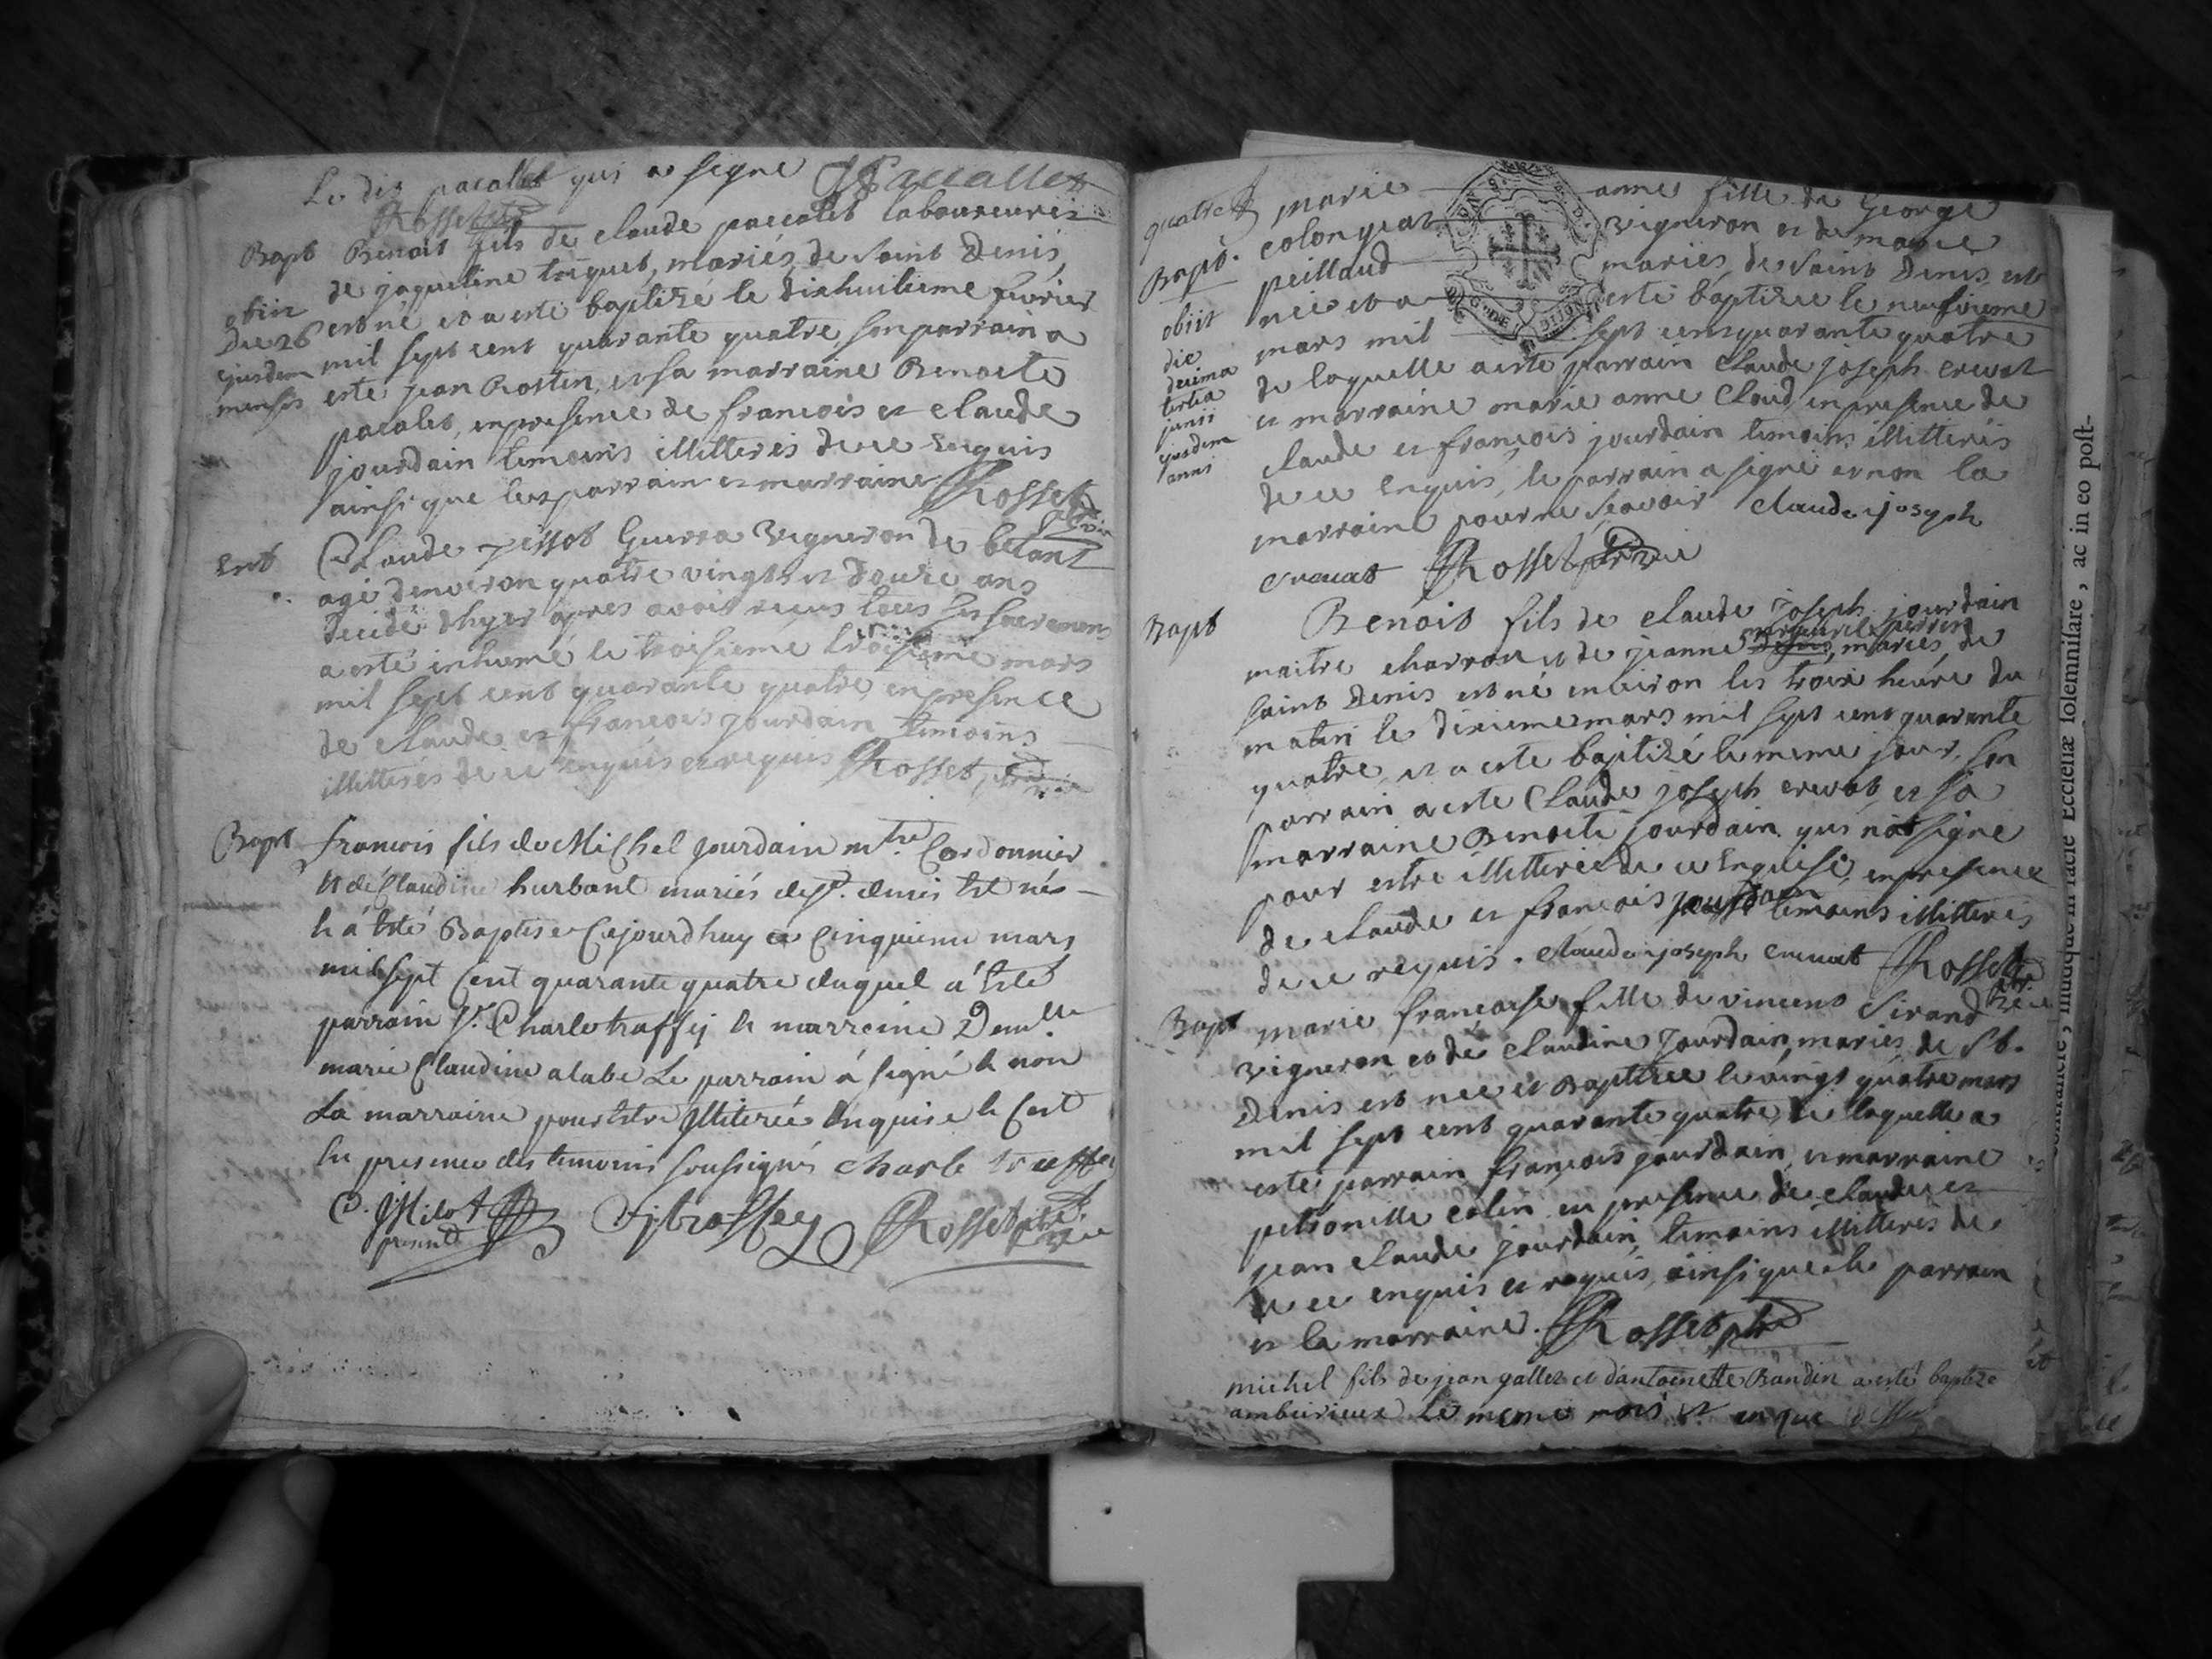 Le dit pacallet qui a signe JPacallet
Rosset
Bapt Benoit fils de claude paccalet laboureur et
de jaqueline triquet, mariés de Saint Denis,
obiit est né et a esté baptizé le dixhuitieme fevrier
Die 26 mil sept cent quarante quatre son parrain a
ejusdem esté jean Rostin, et sa marraine Benoite
mensis pacalet, en presence de francois et claude
jourdain temoins illitterés de ce enquis
ainsi que les parrain et marraine Rosset
Ent Claude pissot Guerra vigneron de
agé denviron quatre vingts et douze ans
decidé dhyer apres avoir reçus tous ses sacremens
a esté inhumé le troisieme troisieme mars
mil sept cent quarante quatre, en presence
de claude et francois Jourdain temoins
illitterés de ce enquis et requis Rosset
Bapt francois fils de Michel Jourdain mtre Cordonnier
et de Claudine hurbant mariés de st. denis est né
et a esté Baptise Cejourdhuy ce Cinquieme mars
mil sept Cent quarante quatre duquel a esté
parrain Sr. Charle traffey et marraine Demlle
marie Claudine alabe Le parrain á signé et non
La marraine pour estre Illiterée Enquise et Cest
En presence des temoins soussignés Charle traffey
C. Milot traffey Rosset ptre
present
quatre marie anne fille de George
Bapt. colongeat vigneron et de marie
peillaud mariés de Saint Denis est
obiit née et a esté baptizee le neufvieme
die mars mil sept cens quarante quatre
decima de laquelle a esté parrain Claude joseph crevat
tertia et marraine marie anne Claud, en presence de
junii claude et françois jourdain temoins illitterés
ejusdem de ce enquis, le parrain a signé et non la
anni marraine pour ne scavoir claude joseph
crevat Rosset
Bapt Benoit fils de claude joseph jourdain
maitre charron et de jeanne perrin mariés de
saint Denis est né environ les trois heure du
matin le dixieme mars mil sept cent quarante
quatre, et a esté baptizé le meme jour, son
parrain a esté Claude joseph crevat, et sa
marraine Benoite jourdain qui nat signe
pour estre illitterée de ce enquise, en presence
de claude et francois jourdain temoins illitterés
de ce requis. claude joseph crevat Rosset
Bapt marie françoise fille de vincent Sirand
vigneron et de claudine Jourdain mariés de St.
Denis est née et Baptizee le vingt quatre mars
mil sept cent quarante quatre, de laquelle a
esté parrain françois jourdain, et marraine
petronille colin en presence de claude et
jean claude jourdain, temoins illitterés de
ce enquis et requis, ainsi que le parrain
et la marraine. Rosset ptre
michel fils de jean gallet et dantoinette Bandin a esté baptizé
ambeirieux Le meme mois et an que dessus